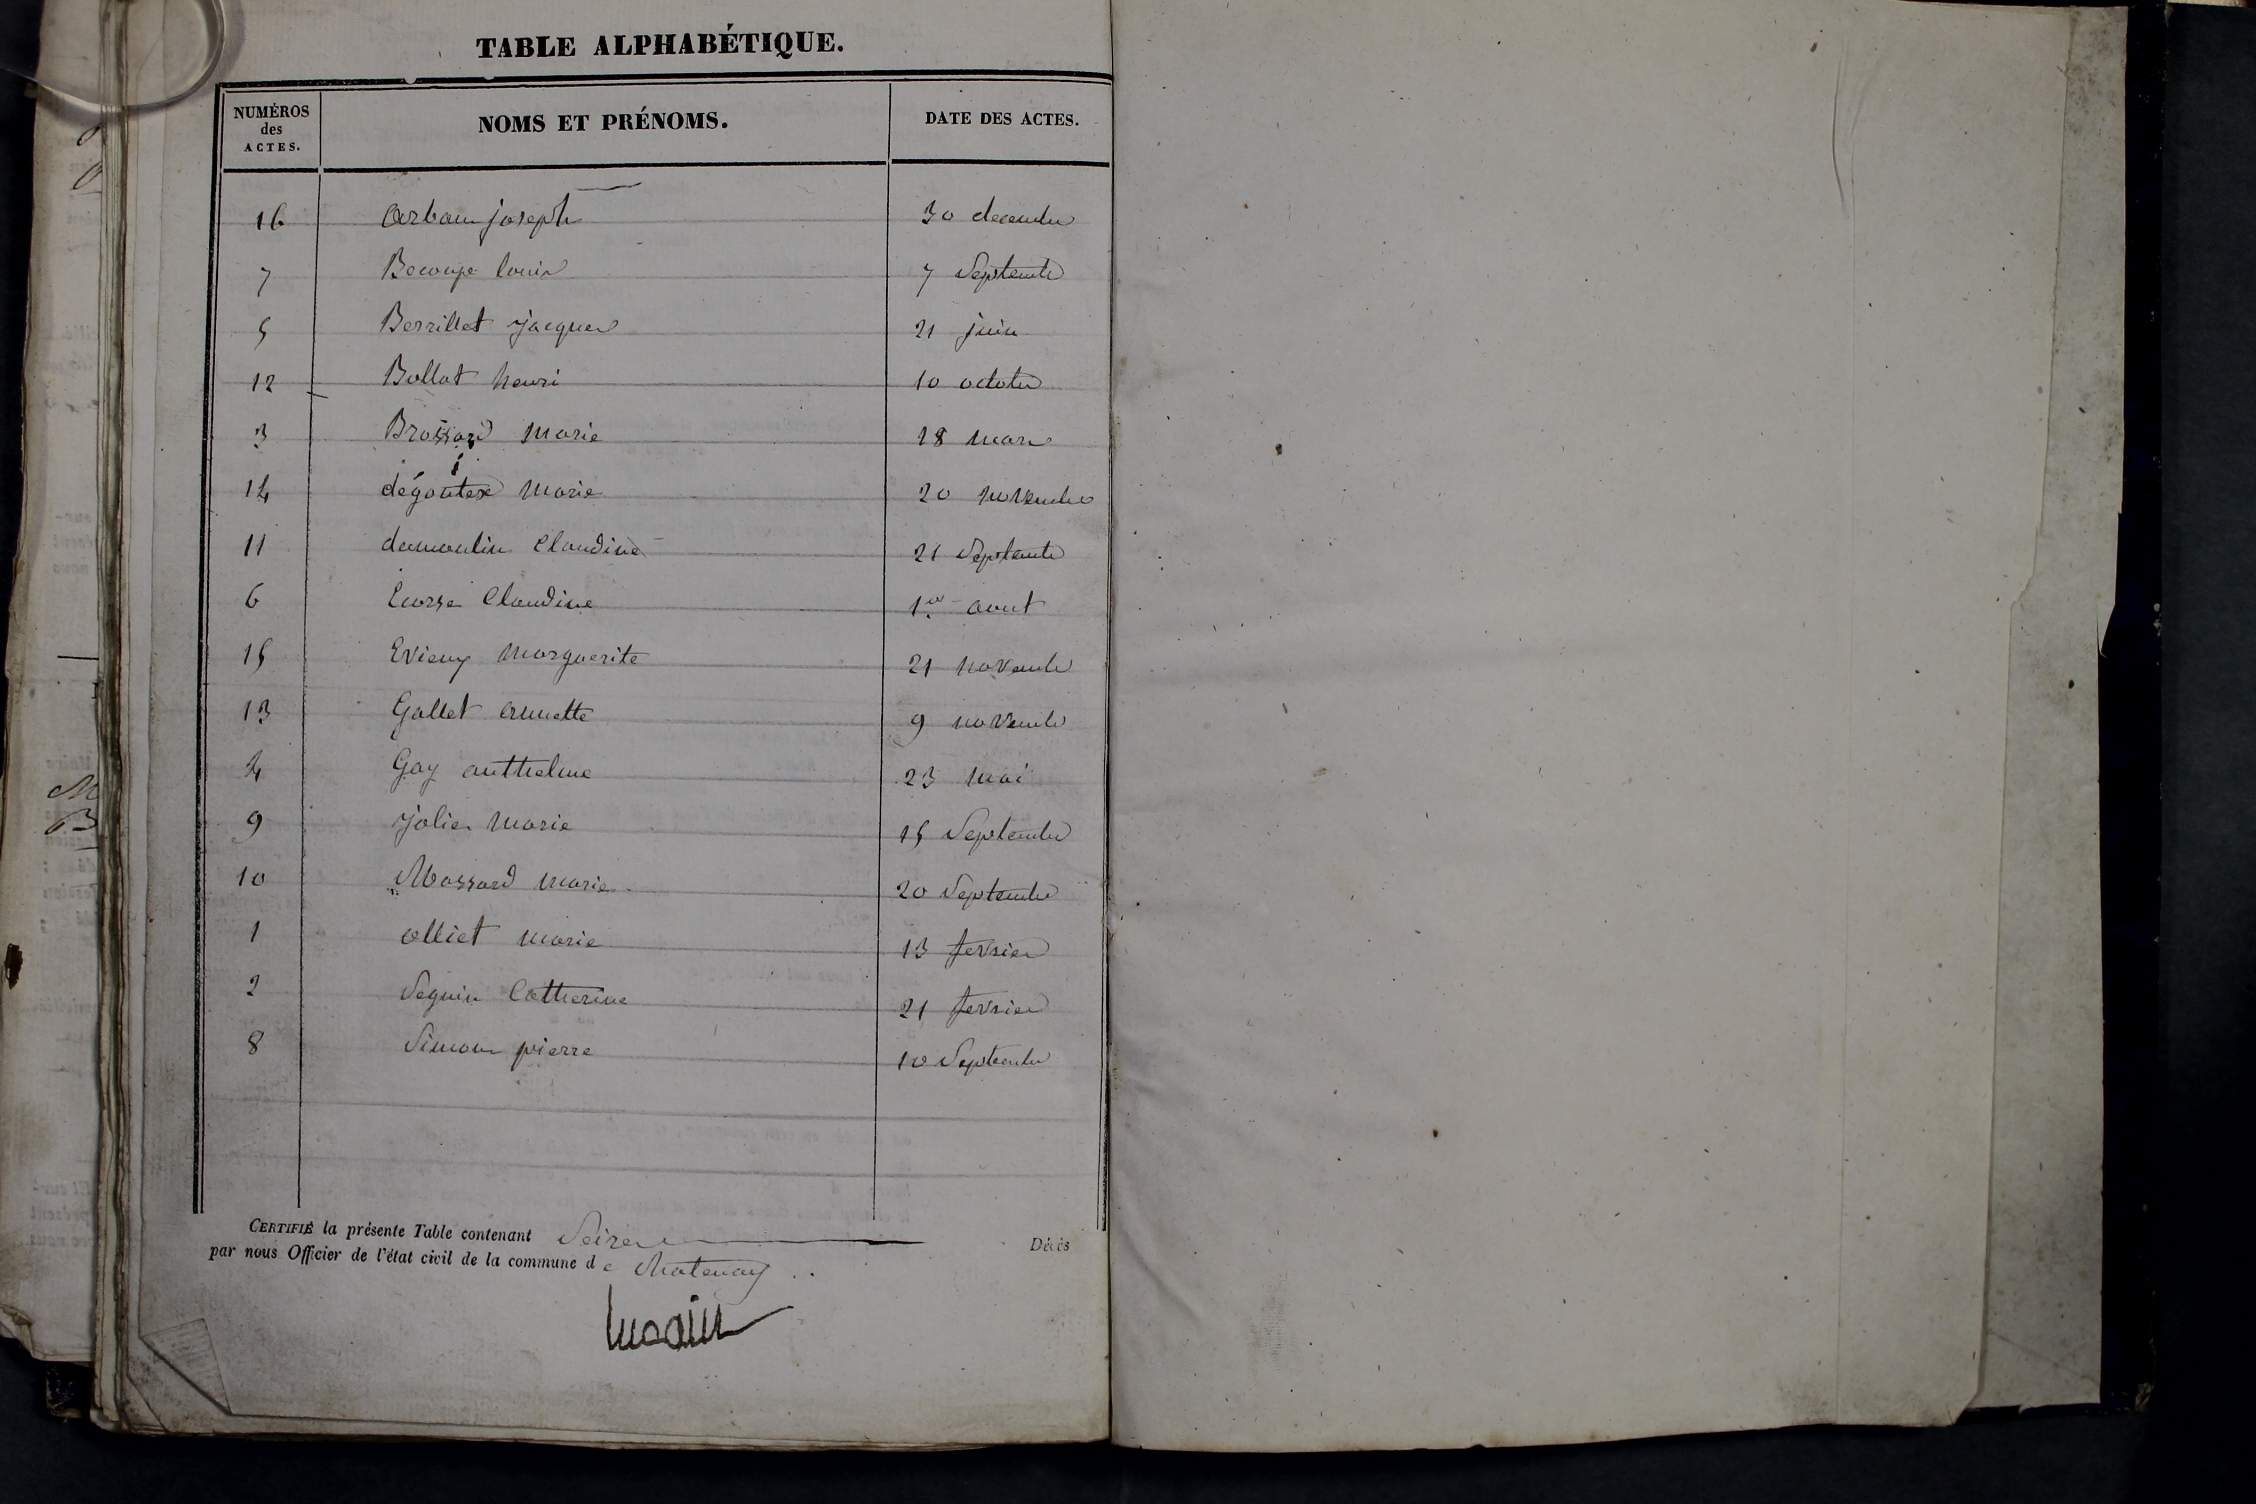 TABLE ALPHABÉTIQUE.
NUMÉROS des ACTES. NOMS ET PRÉNOMS. DATE DES ACTES.
16 arban joseph 30 decembre
7 Becoupe louis 7 Septembre
5 Berrillet jacques 21 juin
12 Bollat henri 10 octobre
3 Brossard Marie 18 mars
14 dégoutex Marie 20 novembre
11 dumoulin Claudine 21 Septembre
6 Ecorse Claudine 1er aout
15 Evieux Marguerite 21 novembre
13 Gallet annette 9 novembre
4 Gay anthelme 23 mai
9 Jolier Marie 15 Septembre
10 Massard Marie 20 Septembre
1 olliet Marie 13 fevrier
2 Seguin Catherine 21 fevrier
8 Simon pierre 10 Septembre
CERTIFIÉ la présente Table contenant Seize Décès
par nous Officier de l'état civil de la commune de Chatenay